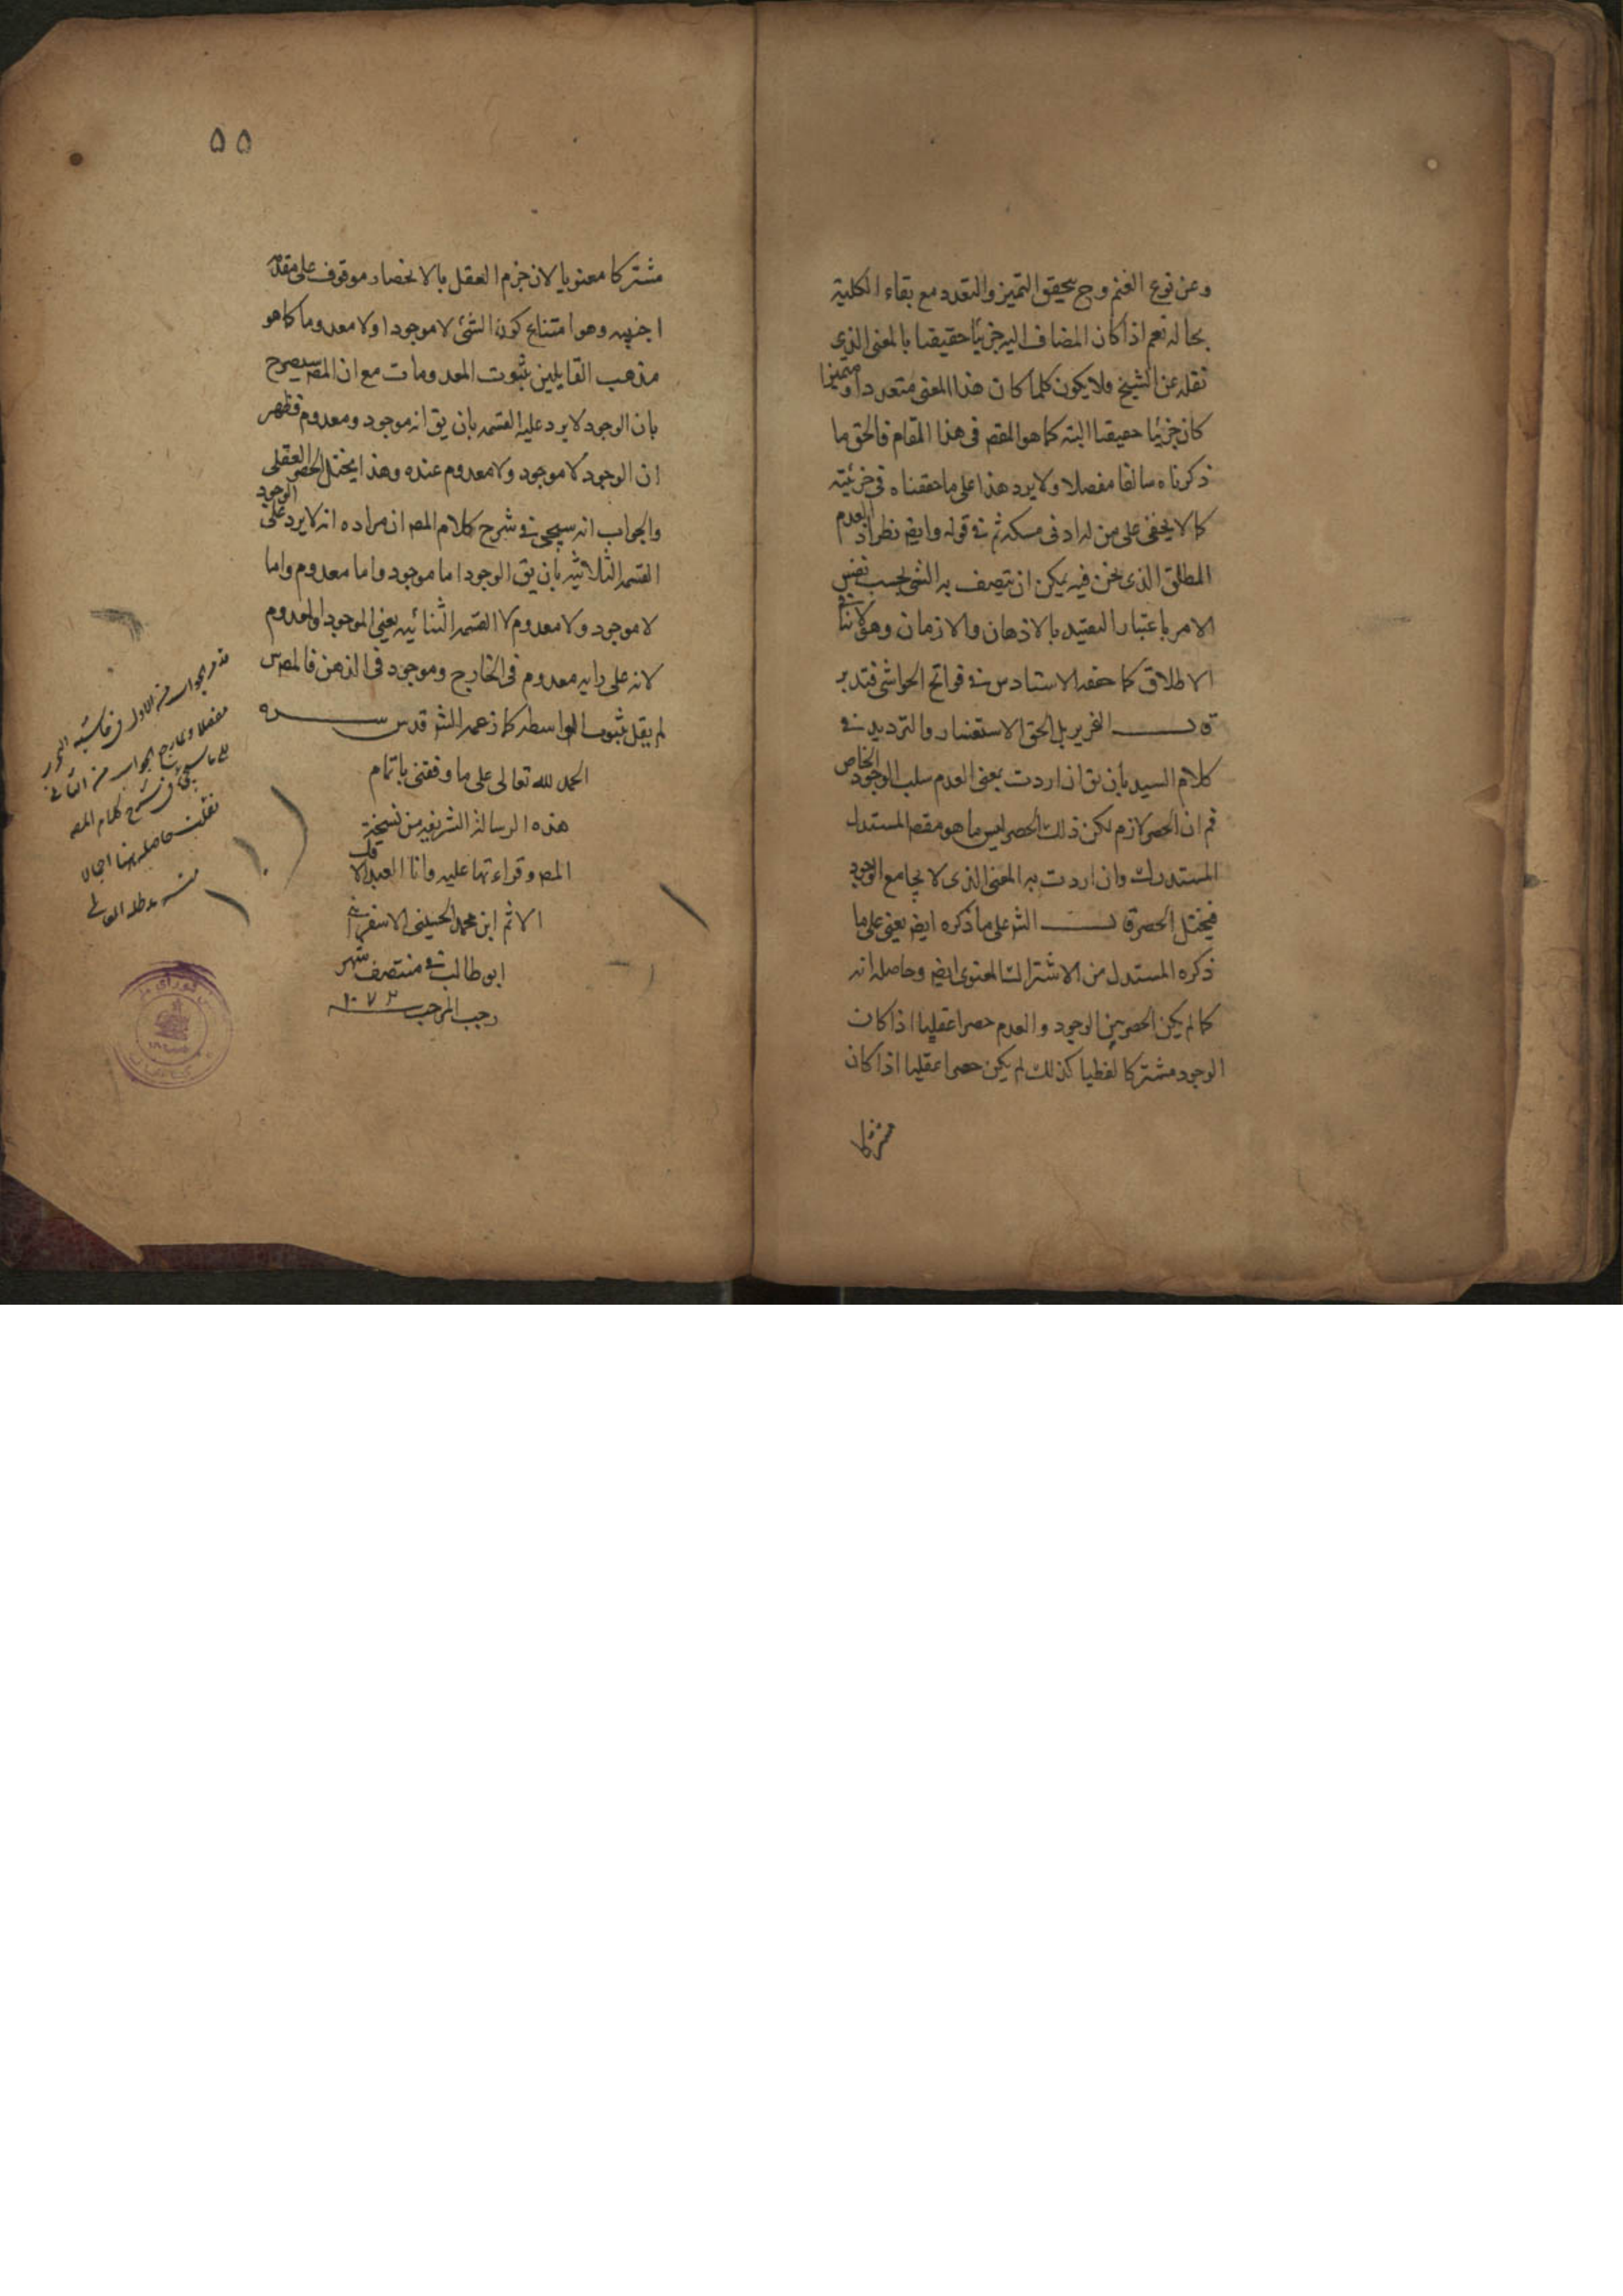 وعن نوع الغنم وح يتحقق التميز والتعدد مع بقاء الكلية
بحاله نعم اذا كان المضاف اليه جزئيا حقيقيا بالمعنى الذى
نقله عن الشيخ فلا يكون كلما كان هذا المعنى متعددا ومتميزا
كان جزئيا حقيقيا البتة كما هو المقصـ فى هذا المقام فالحق ما
ذكرناه سالفا مفصلا ولا يرد هذا على ما حققناه فى جزئيته
كما لا يخفى على من له ادنى مسكة ثم فى قوله وايضـ نظر اذ العدم
المطلق الذى نحن فيه يمكن ان يتصف به الشئ بحسب نفس
الامر باعتبار التقييد بالاذهان والازمان وهو لا ينافى
الاطلاق كما حققه الاستاد س فى فواتح الحواشى فتدبر
قوله النحرير بل الحق الاستفسار والترديد فى
كلام السيد بان يق ان اردت بمعنى العدم سلب الوجود الخاص
فم ان الحصر لازم لكن ذلك الحصر ليس ما هو مقصـ المستدل
المستدرك وان اردت به المعنى الذى لا يجامع الوجود
فيختل الحصر قال الشـ على ما ذكره ايضـ يعنى على ما
ذكره المستدل من الاشتراك المعنوى ايضـ وحاصله انه
كما لم يكن الحصر بين الوجود والعدم حصرا عقليا اذا كان
الوجود مشتركا لفظيا كذلك لم يكن حصرا عقليا اذا كان
مشتركا
۵۵
مشتركا معنويا لان جزم العقل بالانحصار موقوف على مقدمة
اجنبيه وهو امتناع كون الشئ لا موجودا ولا معدوما كما هو
مذهب القايلين بثبوت المعدومات مع ان المصـ سيصرح
بان الوجود لا يرد عليه القسمه بان يق انه موجود ومعدوم فظهر
ان الوجود لا موجود ولا معدوم عنده وهذا يختل الحصر العقلى
والجواب انه سيجئ فى شرح كلام المصـ ان مراده انه لا يرد على الوجود
القسمة الثلاثيه بان يق الوجود اما موجود واما معدوم واما
لا موجود ولا معدوم لا القسمة الثنائيه يعنى الموجود او المعدوم
لانه على رايه معدوم فى الخارج وموجود فى الذهن فالمصـ س
لم يقل بثبوت الواسطه كما زعمه الشـ قدس سره
الحمد لله تعالى على ما وفقنى باتمام
هذه الرسالة الشريفه من نسخة
المصـ وقراءتها عليه وانا العبد الاقل
الاثم ابن محمد الحسينى الاسفراينى
ابو طالب فى منتصف شهر
رجب المرجب ١٠٧٣
الجواب من الاول فى حاشية
مفصلا الجواب من الثانى
على ما سيجئ فى شرح كلام المصـ
نقلت حاصله هنا اجمالا
منه مد ظله العالى